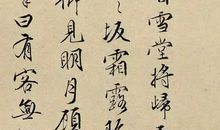 自雪堂將歸于
之坂霜露既
仰見明月顧
曰有客無